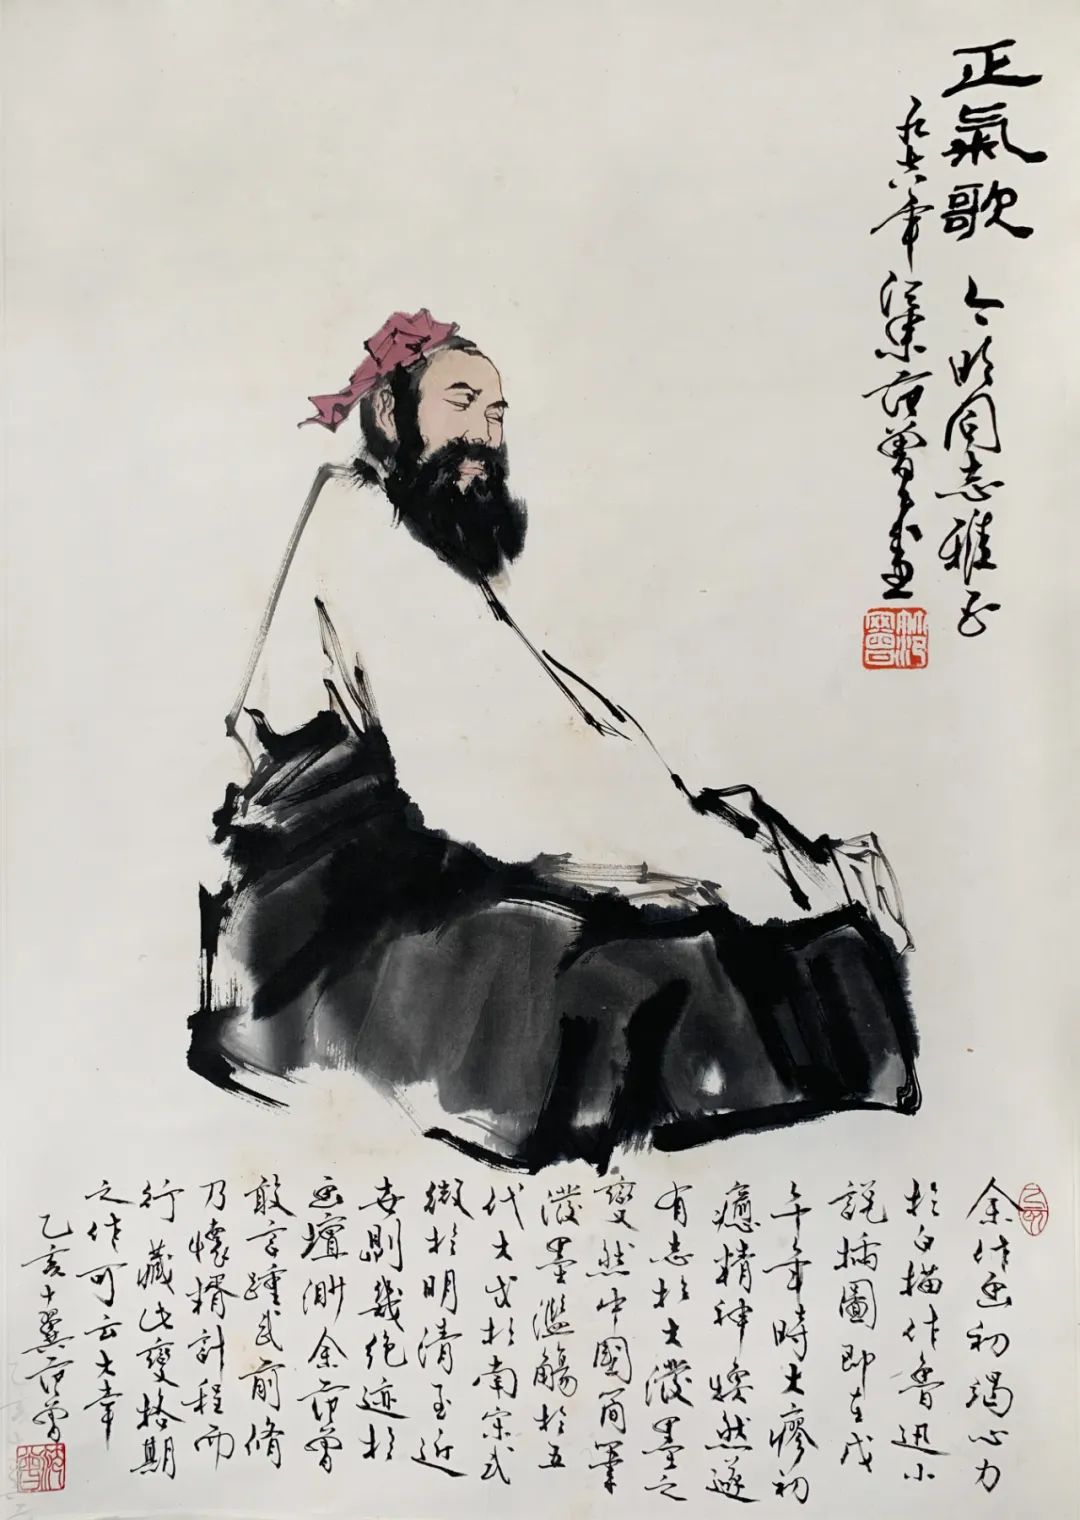 正氣歌 同志雅正
一九七八年江東范曾畫
余作畫初竭心力
於白描作魯迅小
說插圖即在戊
午年時大瘳初
癒精神煥然遂
有志於大潑墨之
變然中國簡筆
潑墨濫觴於五
代大成於南宋式
微於明清至近
世則幾絕迹於
畫壇渺余范曾
敢言踵武前脩
乃懷揣計程而
行藏此變格期
之作可云大幸
乙亥十翼范曾